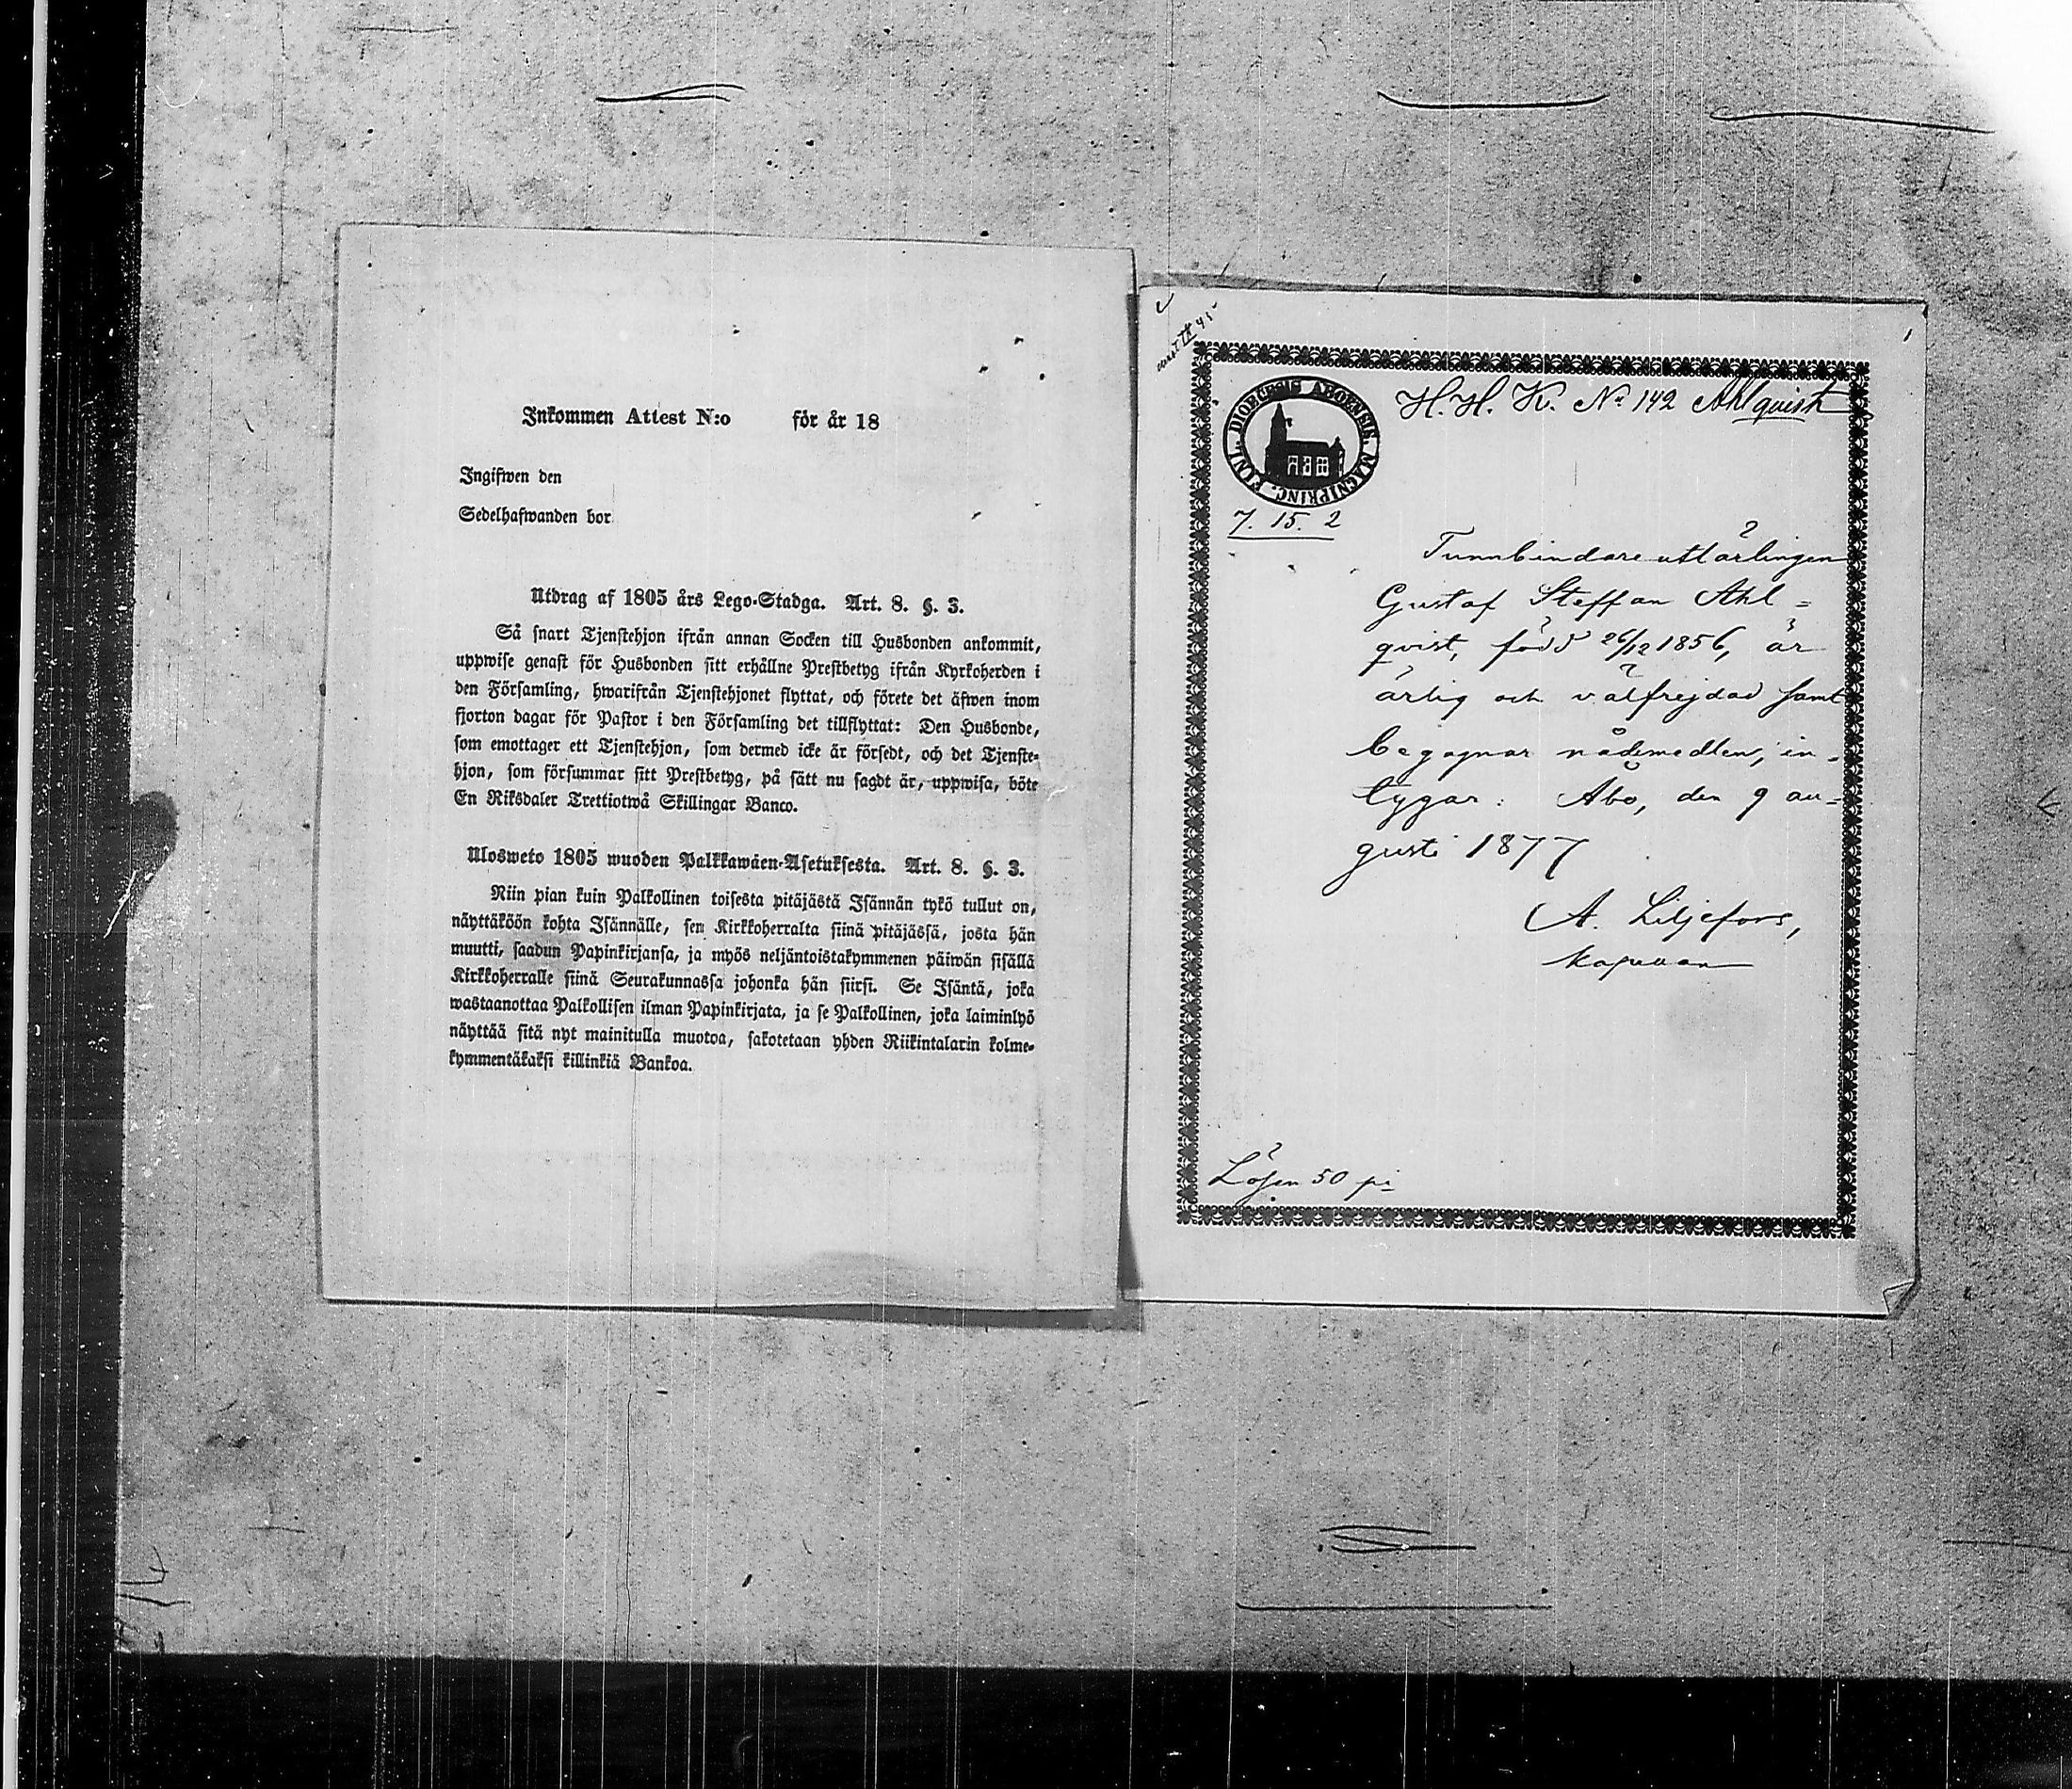 Inkommen Attest N:o för år 18
Ingifwen den
Sedelhafwanden bor
Utdrag af 1805 års Lego-Stadga. Art. 8. §. 3.
Så snart Tjenstehjon ifrån annan Socken till Husbonden ankommit,
uppwise genast för Husbonden sitt erhållne Prestbetyg ifrån Kyrkoherden i
den Församling, hwarifrån Tjenstehjonet flyttat, och förete det äfwen inom
fjorton dagar för Pastor i den Församling det tillflyttat: Den Husbonde,
som emottager ett Tjenstehjon, som dermed icke är försedt, och det Tjenste-
hjon, som försummar sitt Prestbetyg, på sätt nu sagdt är, uppwisa, böte
En Riksdaler Trettiotwå Skillingar Banco.
Ulosweto 1805 wuoden Palkkawäen-Asetuksesta. Art. 8. §. 3.
Niin pian kuin Palkollinen toisesta pitäjästä Isännän tykö tullut on,
näyttäköön kohta Isännälle, sen Kirkkoherralta siinä pitäjässä, josta hän
muutti, saadun Papinkirjansa, ja myös neljäntoistakymmenen päiwän sisällä
Kirkkoherralle siinä Seurakunnassa johonka hän siirsi. Se Isäntä, joka
wastaanottaa Palkollisen ilman Papinkirjata, ja se Palkollinen, joka laiminlyö
näyttää sitä nyt mainitulla muotoa, sakotetaan yhden Riikintalarin kolme-
kymmentäkaksi killinkiä Bankoa.
H. H. K. No 142 Ahlqvist
DIOECESIS ABOENSIS. MAGNIPRINC. FINL.
7. 15. 2
Tunnbindareutlärlingen
Gustaf Steffan Ahl=
qvist, född 26/12 1856, är
ärlig och välfrejdad samt
begagnar nådemedlen, in-
tygar: Åbo, den 9 au=
gusti 1877
A. Liljefors,
kapellan
Lösen 50 pi